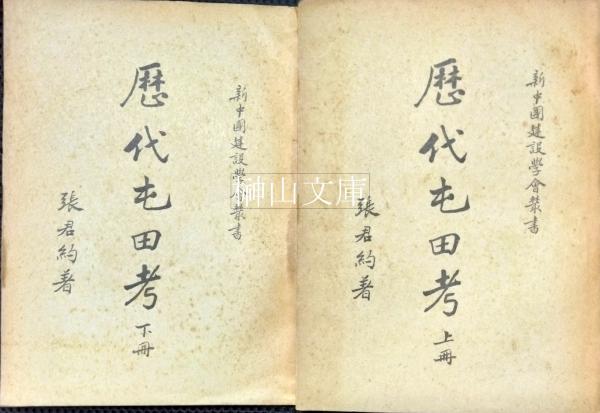 新中國建設學會叢書
歷代屯田考 上冊
張君約著
新中國建設學會叢書
歷代屯田考 下冊
張君約著
榊山文庫